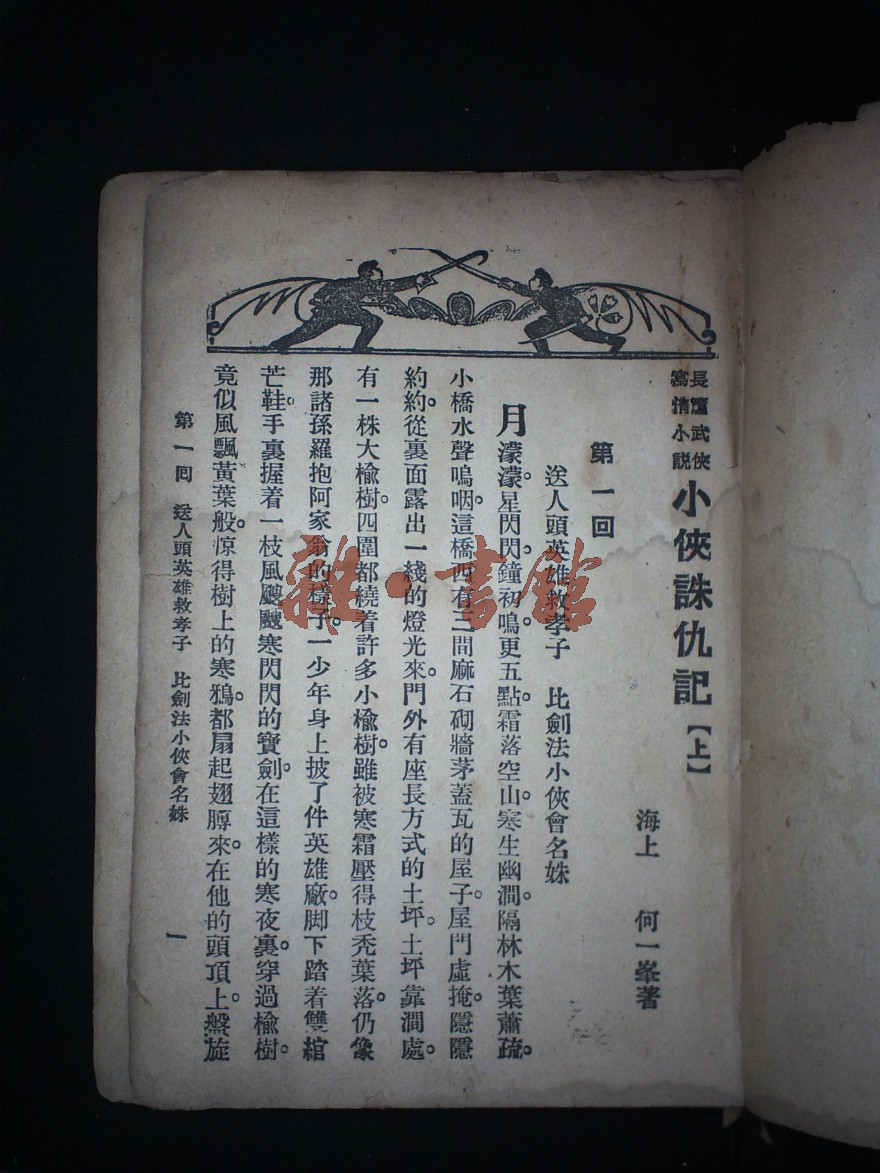 長篇武俠
寫情小說
小俠誅仇記【上】
海上　何一峯著
第一回
送人頭英雄救孝子　比劍法小俠會名姝
月濛濛。星閃閃。鐘初鳴。更五點。霜落空山。寒生幽澗。隔林木葉蕭疏。
小橋水聲嗚咽。這橋西有三間麻石砌牆茅蓋瓦的屋子。屋門虛掩。隱隱
約約。從裏面露出一綫的燈光來。門外有座長方式的土坪。土坪靠澗處。
有一株大榆樹。四圍都繞着許多小榆樹。雖被寒霜壓得枝禿葉落。仍像
那諸孫羅抱阿家翁的樣子。一少年身上披了件英雄厰。脚下踏着雙綰
芒鞋。手裏握着一枝風颼颼寒閃閃的寶劍。在這樣的寒夜裏。穿過榆樹。
竟似風飄黃葉般。惊得樹上的寒鴉。都扇起翅膊來。在他的頭頂上。盤旋
第一回　送人頭英雄救孝子　比劍法小俠會名姝
一
雜·書館